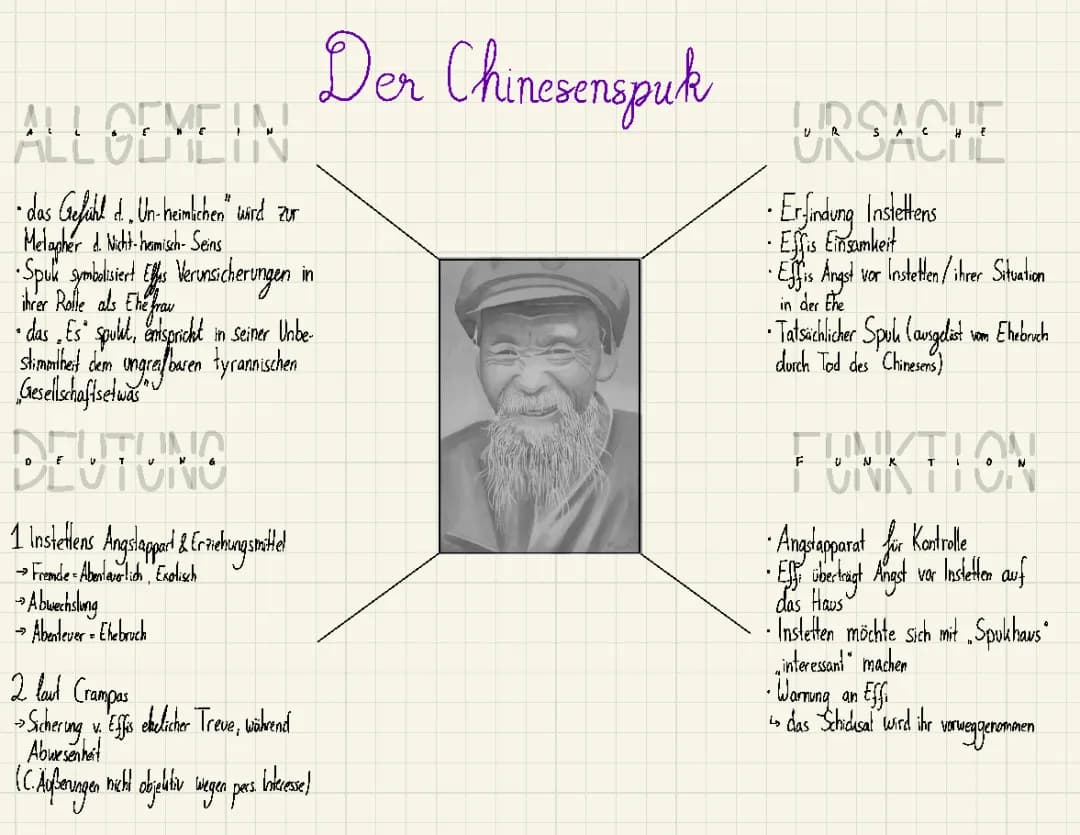 Der Chinesenspuk
ALLGEMEIN
• das Gefühl d. „Un-heimlichen" wird zur
Metapher d. Nicht-heimisch-Seins
• Spuk symbolisiert Effis Verunsicherungen in
ihrer Rolle als Ehefrau
• das „Es" spukt, entspricht in seiner Unbe-
stimmtheit dem ungreifbaren tyrannischen
„Gesellschaftsetwas"
DEUTUNG
1 Instettens Angstappart & Erziehungsmittel
→ Fremde = Abenteuerlich, Exotisch
→ Abwechslung
→ Abenteuer = Ehebruch
2 laut Crampas
→ Sicherung v. Effis ehelicher Treue, während
Abwesenheit
(C. Äußerungen nicht objektiv wegen pers. Interesse)
URSACHE
• Erfindung Instettens
• Effis Einsamkeit
• Effis Angst vor Instetten/ihrer Situation
in der Ehe
• Tatsächlicher Spuk (ausgelöst vom Ehebruch
durch Tod des Chinesens)
FUNKTION
• Angstapparat für Kontrolle
• Effi überträgt Angst vor Instetten auf
das Haus
• Instetten möchte sich mit „Spukhaus"
„interessant" machen
• Warnung an Effi
↳ das Schicksal wird ihr vorweggenommen